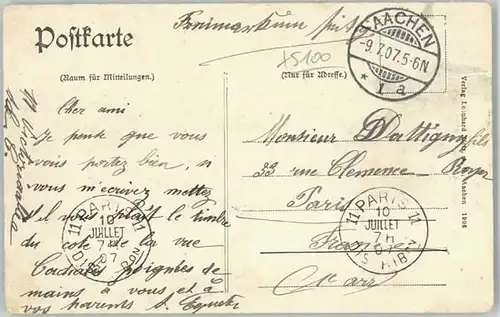 Postkarte
(Raum für Mitteilungen.)
(Nur für Adresse.)
AACHEN
-9.7.07.5-6N.
* 1 a
x5100
Cher ami
Je pense que vous
vous portez bien, si
vous m'écrivez mettez
s'il vous plaît le timbre
du coté de la vue
Cordiales poignées de
mains à vous et à
vos parents
Monsieur Dattigny fils
33 rue Clemence Royer
Paris
France
PARIS 11
10
JUILLET
7H
07
DISTRIBUTION
11 PARIS 11
10
JUILLET
7H
07
DISTRIB
Verlag Leonhard Aachen 1906